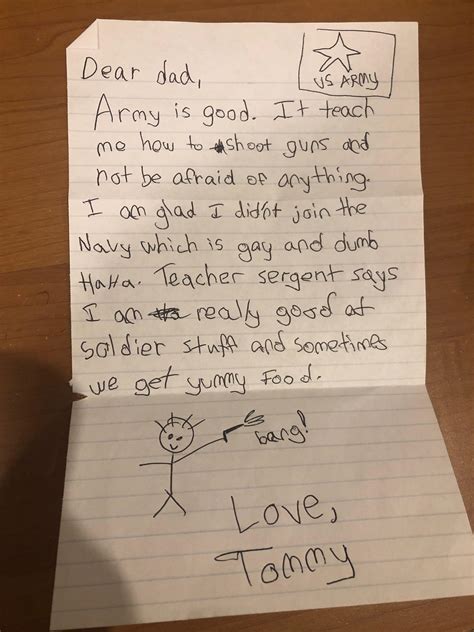 Dear dad,
US ARMY
Army is good. It teach
me how to shoot guns and
not be afraid of anything.
I am glad I didn't join the
Navy which is gay and dumb
HaHa. Teacher sergent says
I am really good at
soldier stuff and sometimes
we get yummy Food.
bang!
Love,
Tommy